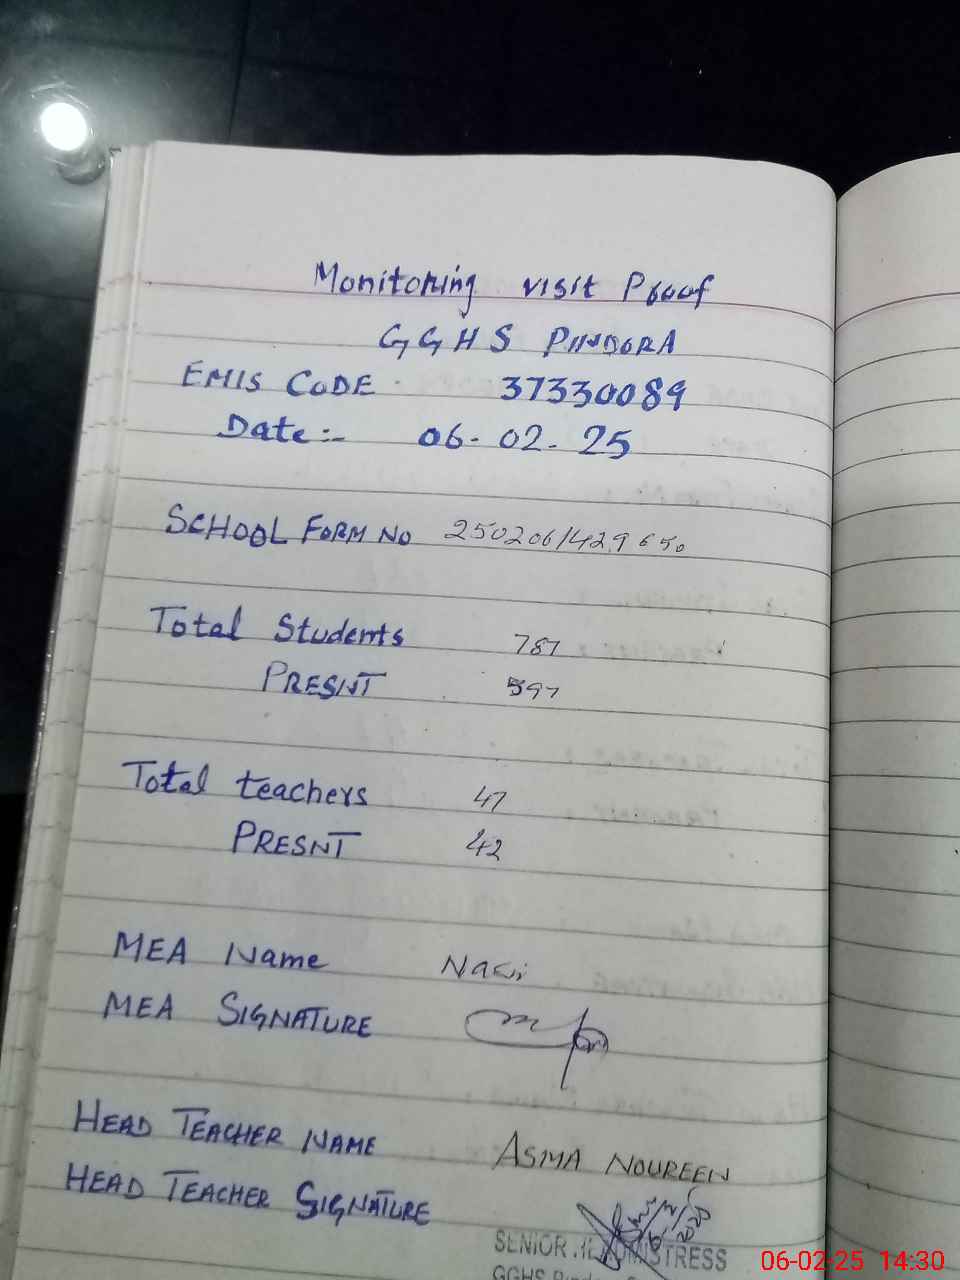 Monitoring visit Proof
GGHS PINDORA
EMIS CODE 37330089
Date:- 06-02-25
SCHOOL FORM NO 250206/429650
Total Students 787
PRESNT 597
Total teachers 47
PRESNT 42
MEA Name
MEA SIGNATURE
HEAD TEACHER NAME ASMA NOUREEN
HEAD TEACHER SIGNATURE
SENIOR
GGHS
06-02-25 14:30